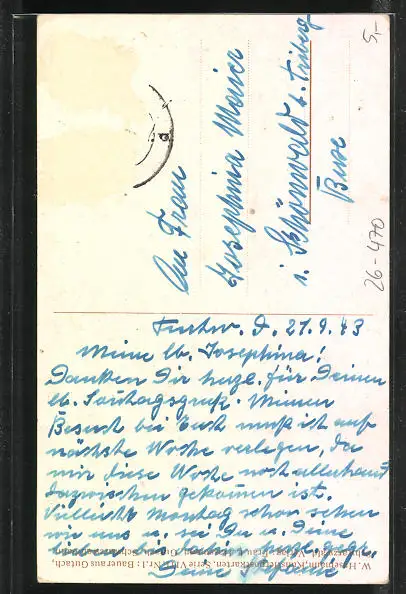 An Frau
Josephina Maier
i. Schönwald b. Triberg
5,-
26-470
Furtw. d. 21.9.43
Meine lb. Josephina!
Danken Dir herzl. für Deinen
lb. Sontagsgruß. Meinen
Besuch bei Euch muß ich auf
nächste Woche verlegen, da
mir diese Woche noch allerhand
dazwischen gekommen ist.
Vielleicht Montag schon sehen
wir uns u. sei Du u. Deine
Lieben bis dahin herzl. gegr.
Deine
W. Hasemann, Künstlerpostkarten, Serie V Nr. 1: Baueraus Gutach,